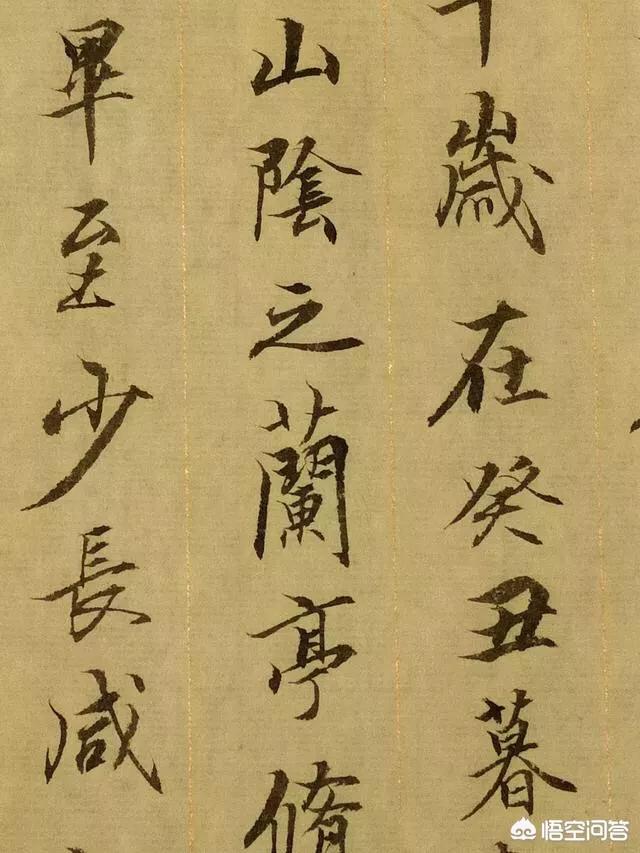 歲在癸丑暮
山陰之蘭亭脩
畢至少長咸
悟空问答